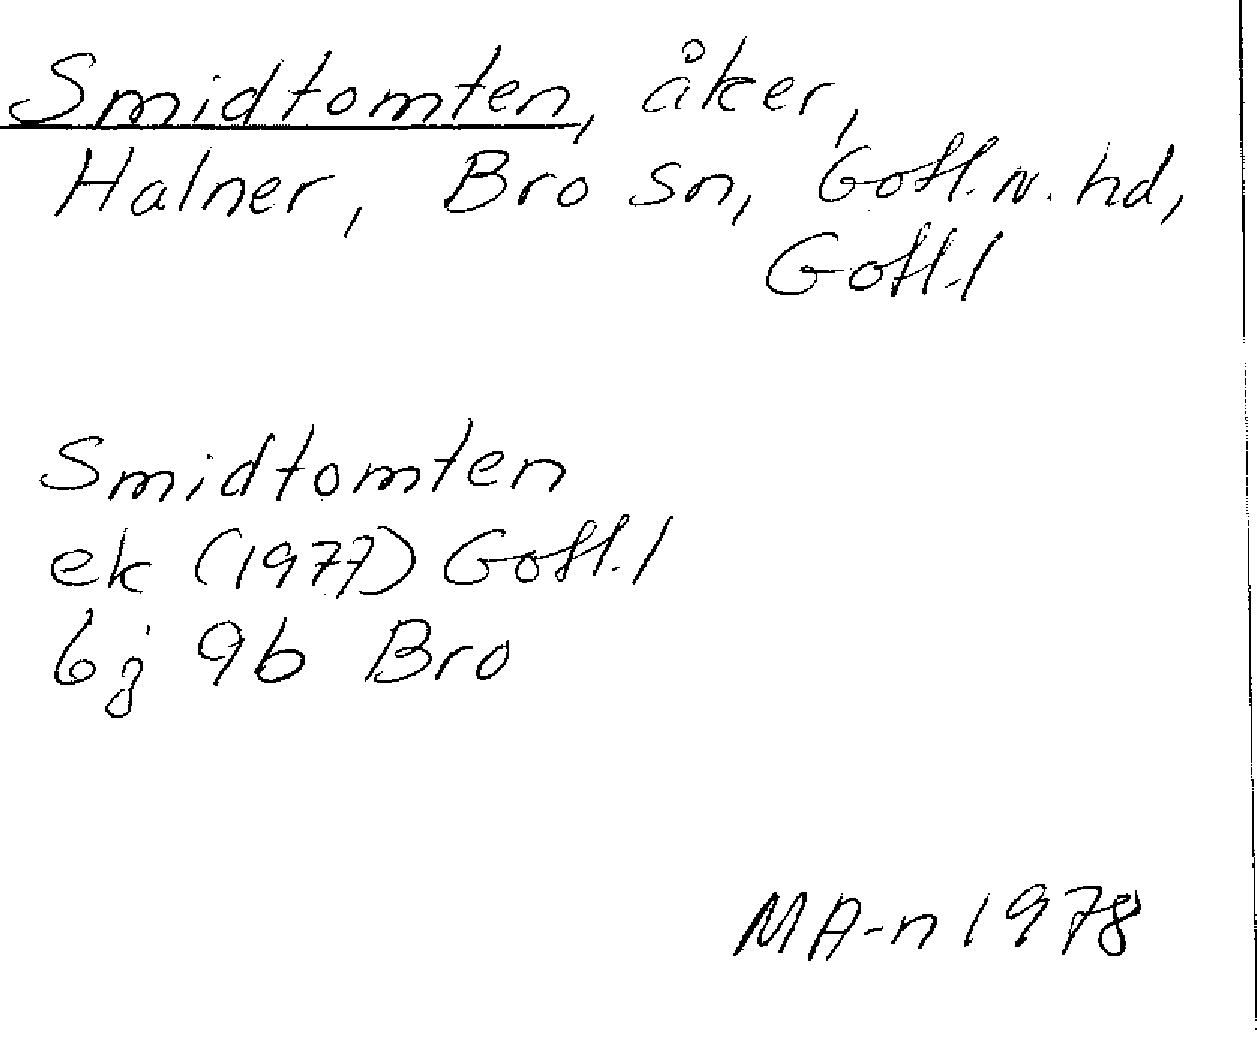 Smidtomten, åker,
Halner, Bro sn, Gotl. n. hd,
Gotl. l
Smidtomten
ek (1977) Gotl. l
6j 9b Bro
MA-n 1978